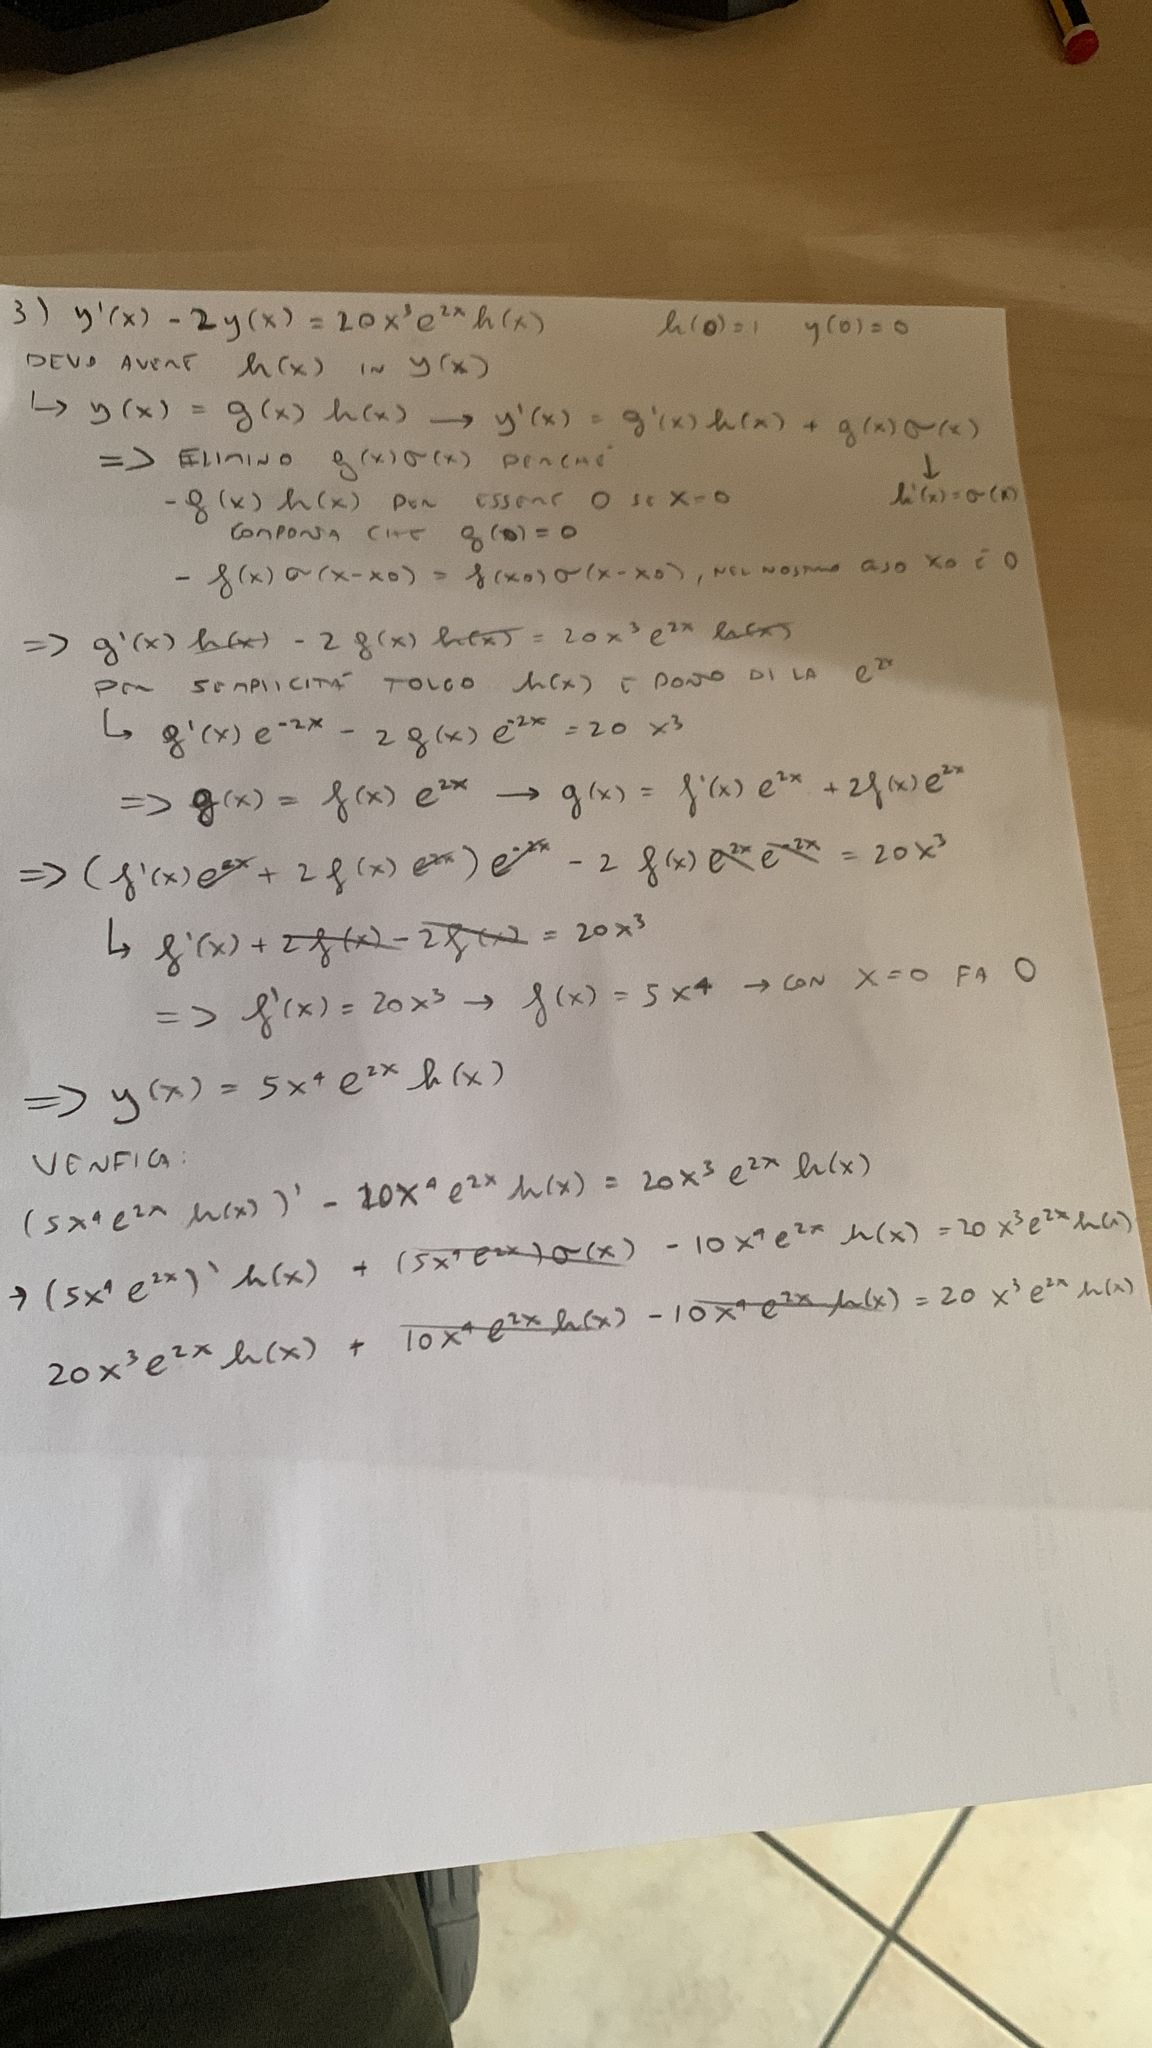 3) y'(x) - 2y(x) = 20x³e²ˣ h(x) h(0)=1 y(0)=0
DEVO AVERE h(x) IN y(x)
↳ y(x) = g(x) h(x) → y'(x) = g'(x) h(x) + g(x)σ(x)
↓
=> ELIMINO g(x)σ(x) PERCHÉ
h'(x)=σ(x)
- g(x) h(x) PER ESSERE 0 SE X=0
COMPORTA CHE g(0)=0
- f(x)σ(x-x0) = f(x0)σ(x-x0), NEL NOSTRO CASO X0 È 0
=> g'(x) h(x) - 2 g(x) h(x) = 20x³e²ˣ h(x)
PER SEMPLICITÀ TOLGO h(x) E PORTO DI LA e²ˣ
↳ g'(x)e⁻²ˣ - 2g(x)e⁻²ˣ = 20 x³
=> g(x) = f(x) e²ˣ → g(x) = f'(x) e²ˣ + 2f(x)e²ˣ
=> (f'(x)e²ˣ + 2f(x)e²ˣ)e⁻²ˣ - 2 f(x)e²ˣe⁻²ˣ = 20x³
↳ f'(x) + 2f(x) - 2f(x) = 20x³
=> f'(x) = 20x³ → f(x) = 5x⁴ → CON X=0 FA 0
=> y(x) = 5x⁴e²ˣ h(x)
VERIFICA:
(5x⁴e²ˣ h(x))' - 10x⁴e²ˣ h(x) = 20x³e²ˣ h(x)
→ (5x⁴e²ˣ)' h(x) + (5x⁴e²ˣ)σ(x) - 10x⁴e²ˣ h(x) = 20x³e²ˣh(x)
20x³e²ˣ h(x) + 10x⁴e²ˣ h(x) - 10x⁴e²ˣ h(x) = 20 x³e²ˣ h(x)